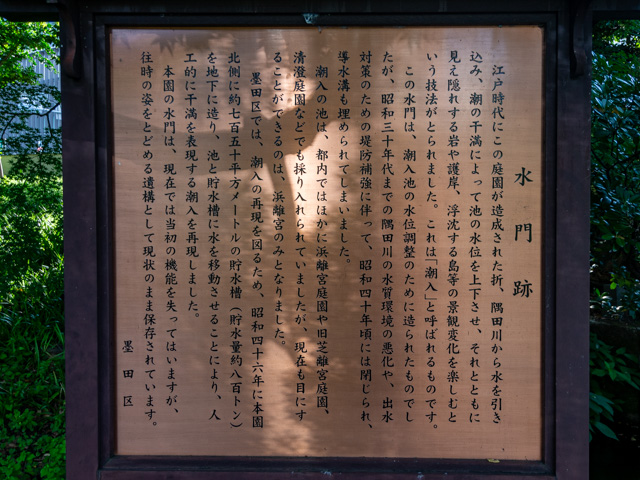 水門跡
江戸時代にこの庭園が造成された折、隅田川から水を引き
込み、潮の干満によって池の水位を上下させ、それとともに
見え隠れする岩や護岸、浮沈する島等の景観変化を楽しむと
いう技法がとられました。これは「潮入」と呼ばれるものです。
この水門は、潮入池の水位調整のために造られたものでし
たが、昭和三十年代までの隅田川の水質環境の悪化や、出水
対策のための堤防補強に伴って、昭和四十年頃には閉じられ、
導水溝も埋められてしまいました。
潮入の池は、都内ではほかに浜離宮庭園や旧芝離宮庭園、
清澄庭園などでも採り入れられていましたが、現在も目にす
ることができるのは、浜離宮のみとなりました。
墨田区では、潮入の再現を図るため、昭和四十六年に本園
北側に約七百五十平方メートルの貯水槽（貯水量約八百トン）
を地下に造り、池と貯水槽に水を移動させることにより、人
工的に干満を表現する潮入を再現しました。
本園の水門は、現在では当初の機能を失ってはいますが、
往時の姿をとどめる遺構として現状のまま保存されています。
墨田区